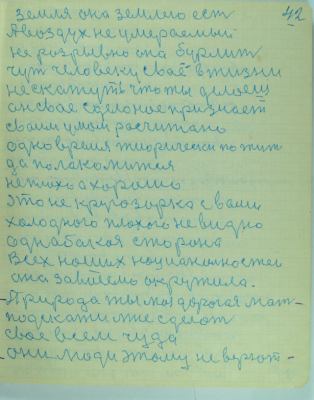 42
земля она землею ест
А воздух не умераемый
не розрывно она бурлит
чут человеку своё в тизни
не скажуть что ты делоеш
он свае сделоное признает
сваим умом росчитано
одно время тиорически по жит
да полакомится
неплохо а хорошо
это не кругозорка с вами
холодного плохого не видно
однабакая сторона
Всех наших национальностей
она за
окружила.
-Природа ты моя дорогая мать-
подскажи мне сделат
свае всем чуда
-они люди этому не верют-